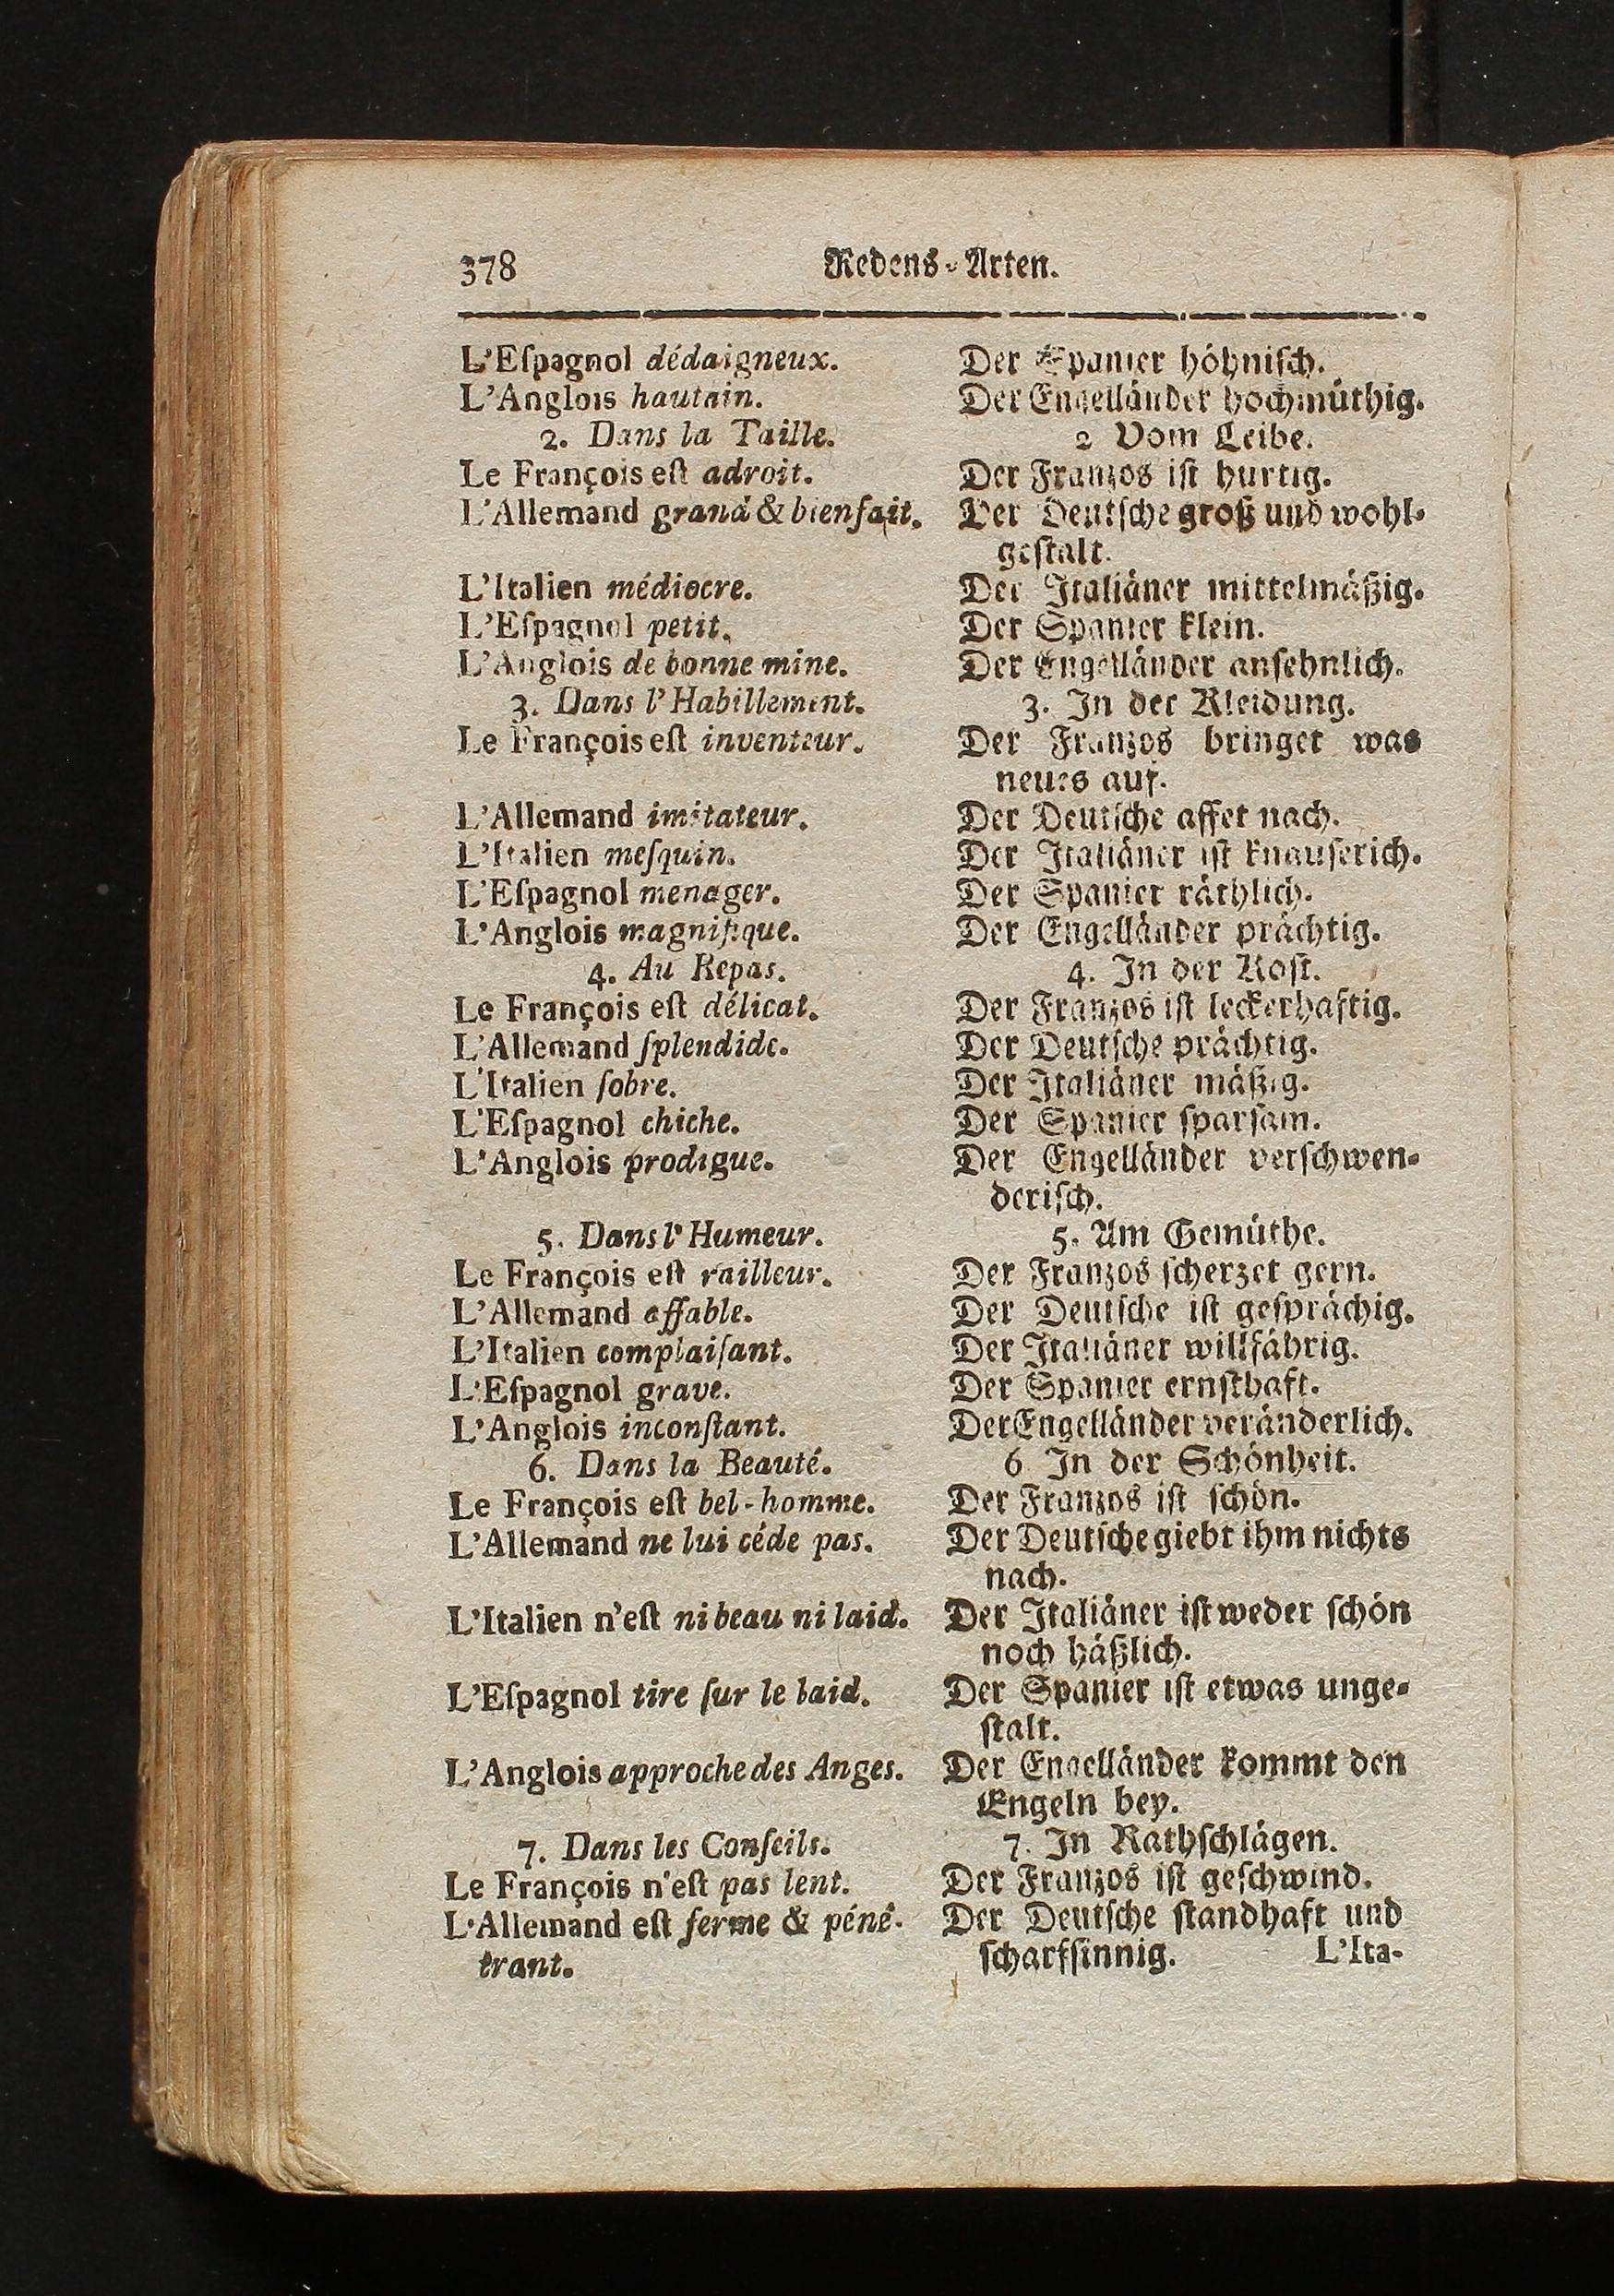 378
Redens-Arten.
L'Eſpagnol dédaigneux.
L'Anglois hautain.
2. Dans la Taille.
Le François eſt adroit.
L'Allemand grand & bienfait.
L'Italien médiocre.
L'Eſpagnol petit.
L'Anglois de bonne mine.
3. Dans l'Habillement.
Le François eſt inventeur.
L'Allemand imitateur.
L'Italien meſquin.
L'Eſpagnol menager.
L'Anglois magnifique.
4. Au Repas.
Le François eſt délicat.
L'Allemand ſplendide.
L'Italien ſobre.
L'Eſpagnol chiche.
L'Anglois prodigue.
5. Dans l'Humeur.
Le François eſt railleur.
L'Allemand affable.
L'Italien complaiſant.
L'Eſpagnol grave.
L'Anglois inconſtant.
6. Dans la Beauté.
Le François eſt bel-homme.
L'Allemand ne lui céde pas.
L'Italien n'eſt ni beau ni laid.
L'Eſpagnol tire ſur le laid.
L'Anglois approche des Anges.
7. Dans les Conſeils.
Le François n'eſt pas lent.
L'Allemand eſt ferme & péné-
trant.
Der Spanier höhniſch.
Der Engelländer hochmüthig.
2 Vom Leibe.
Der Franzos iſt hurtig.
Der Deutſche groß und wohl-
geſtalt.
Der Italiäner mittelmäßig.
Der Spanier klein.
Der Engelländer anſehnlich.
3. In der Kleidung.
Der Franzos bringet was
neues auf.
Der Deutſche affet nach.
Der Italiäner iſt knauſerich.
Der Spanier räthlich.
Der Engelländer prächtig.
4. In der Koſt.
Der Franzos iſt leckerhaftig.
Der Deutſche prächtig.
Der Italiäner mäßig.
Der Spanier ſparſam.
Der Engelländer verſchwen-
deriſch.
5. Am Gemüthe.
Der Franzos ſcherzet gern.
Der Deutſche iſt geſprächig.
Der Italiäner willfährig.
Der Spanier ernſthaft.
Der Engelländer veränderlich.
6 In der Schönheit.
Der Franzos iſt ſchön.
Der Deutſche giebt ihm nichts
nach.
Der Italiäner iſt weder ſchön
noch häßlich.
Der Spanier iſt etwas unge-
ſtalt.
Der Engelländer kommt den
Engeln bey.
7. In Rathſchlägen.
Der Franzos iſt geſchwind.
Der Deutſche ſtandhaft und
ſcharfſinnig.
L'Ita-